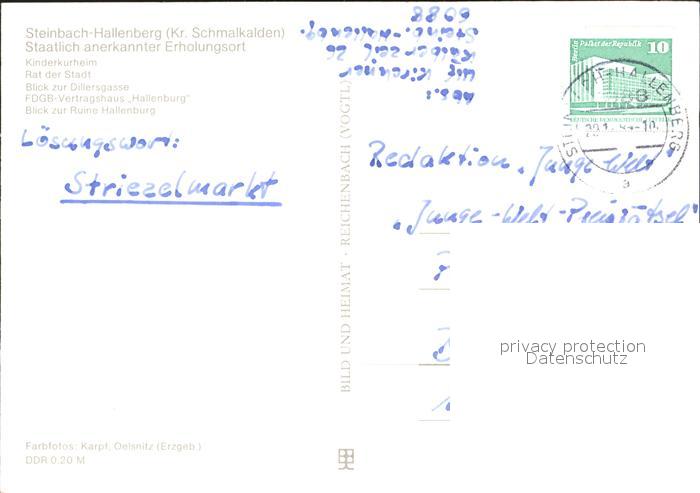 Steinbach-Hallenberg (Kr. Schmalkalden)
Staatlich anerkannter Erholungsort
Kinderkurheim
Rat der Stadt
Blick zur Dillersgasse
FDGB-Vertragshaus „Hallenburg"
Blick zur Ruine Hallenburg
Lösungswort:
Striezelmarkt
Abs.:
6088
Berlin Palast der Republik 10
Redaktion „Junge Welt"
„Junge-Welt-Preisrätsel"
BILD UND HEIMAT · REICHENBACH (VOGTL)
privacy protection
Datenschutz
Farbfotos: Karpf, Oelsnitz (Erzgeb.)
DDR 0.20 M